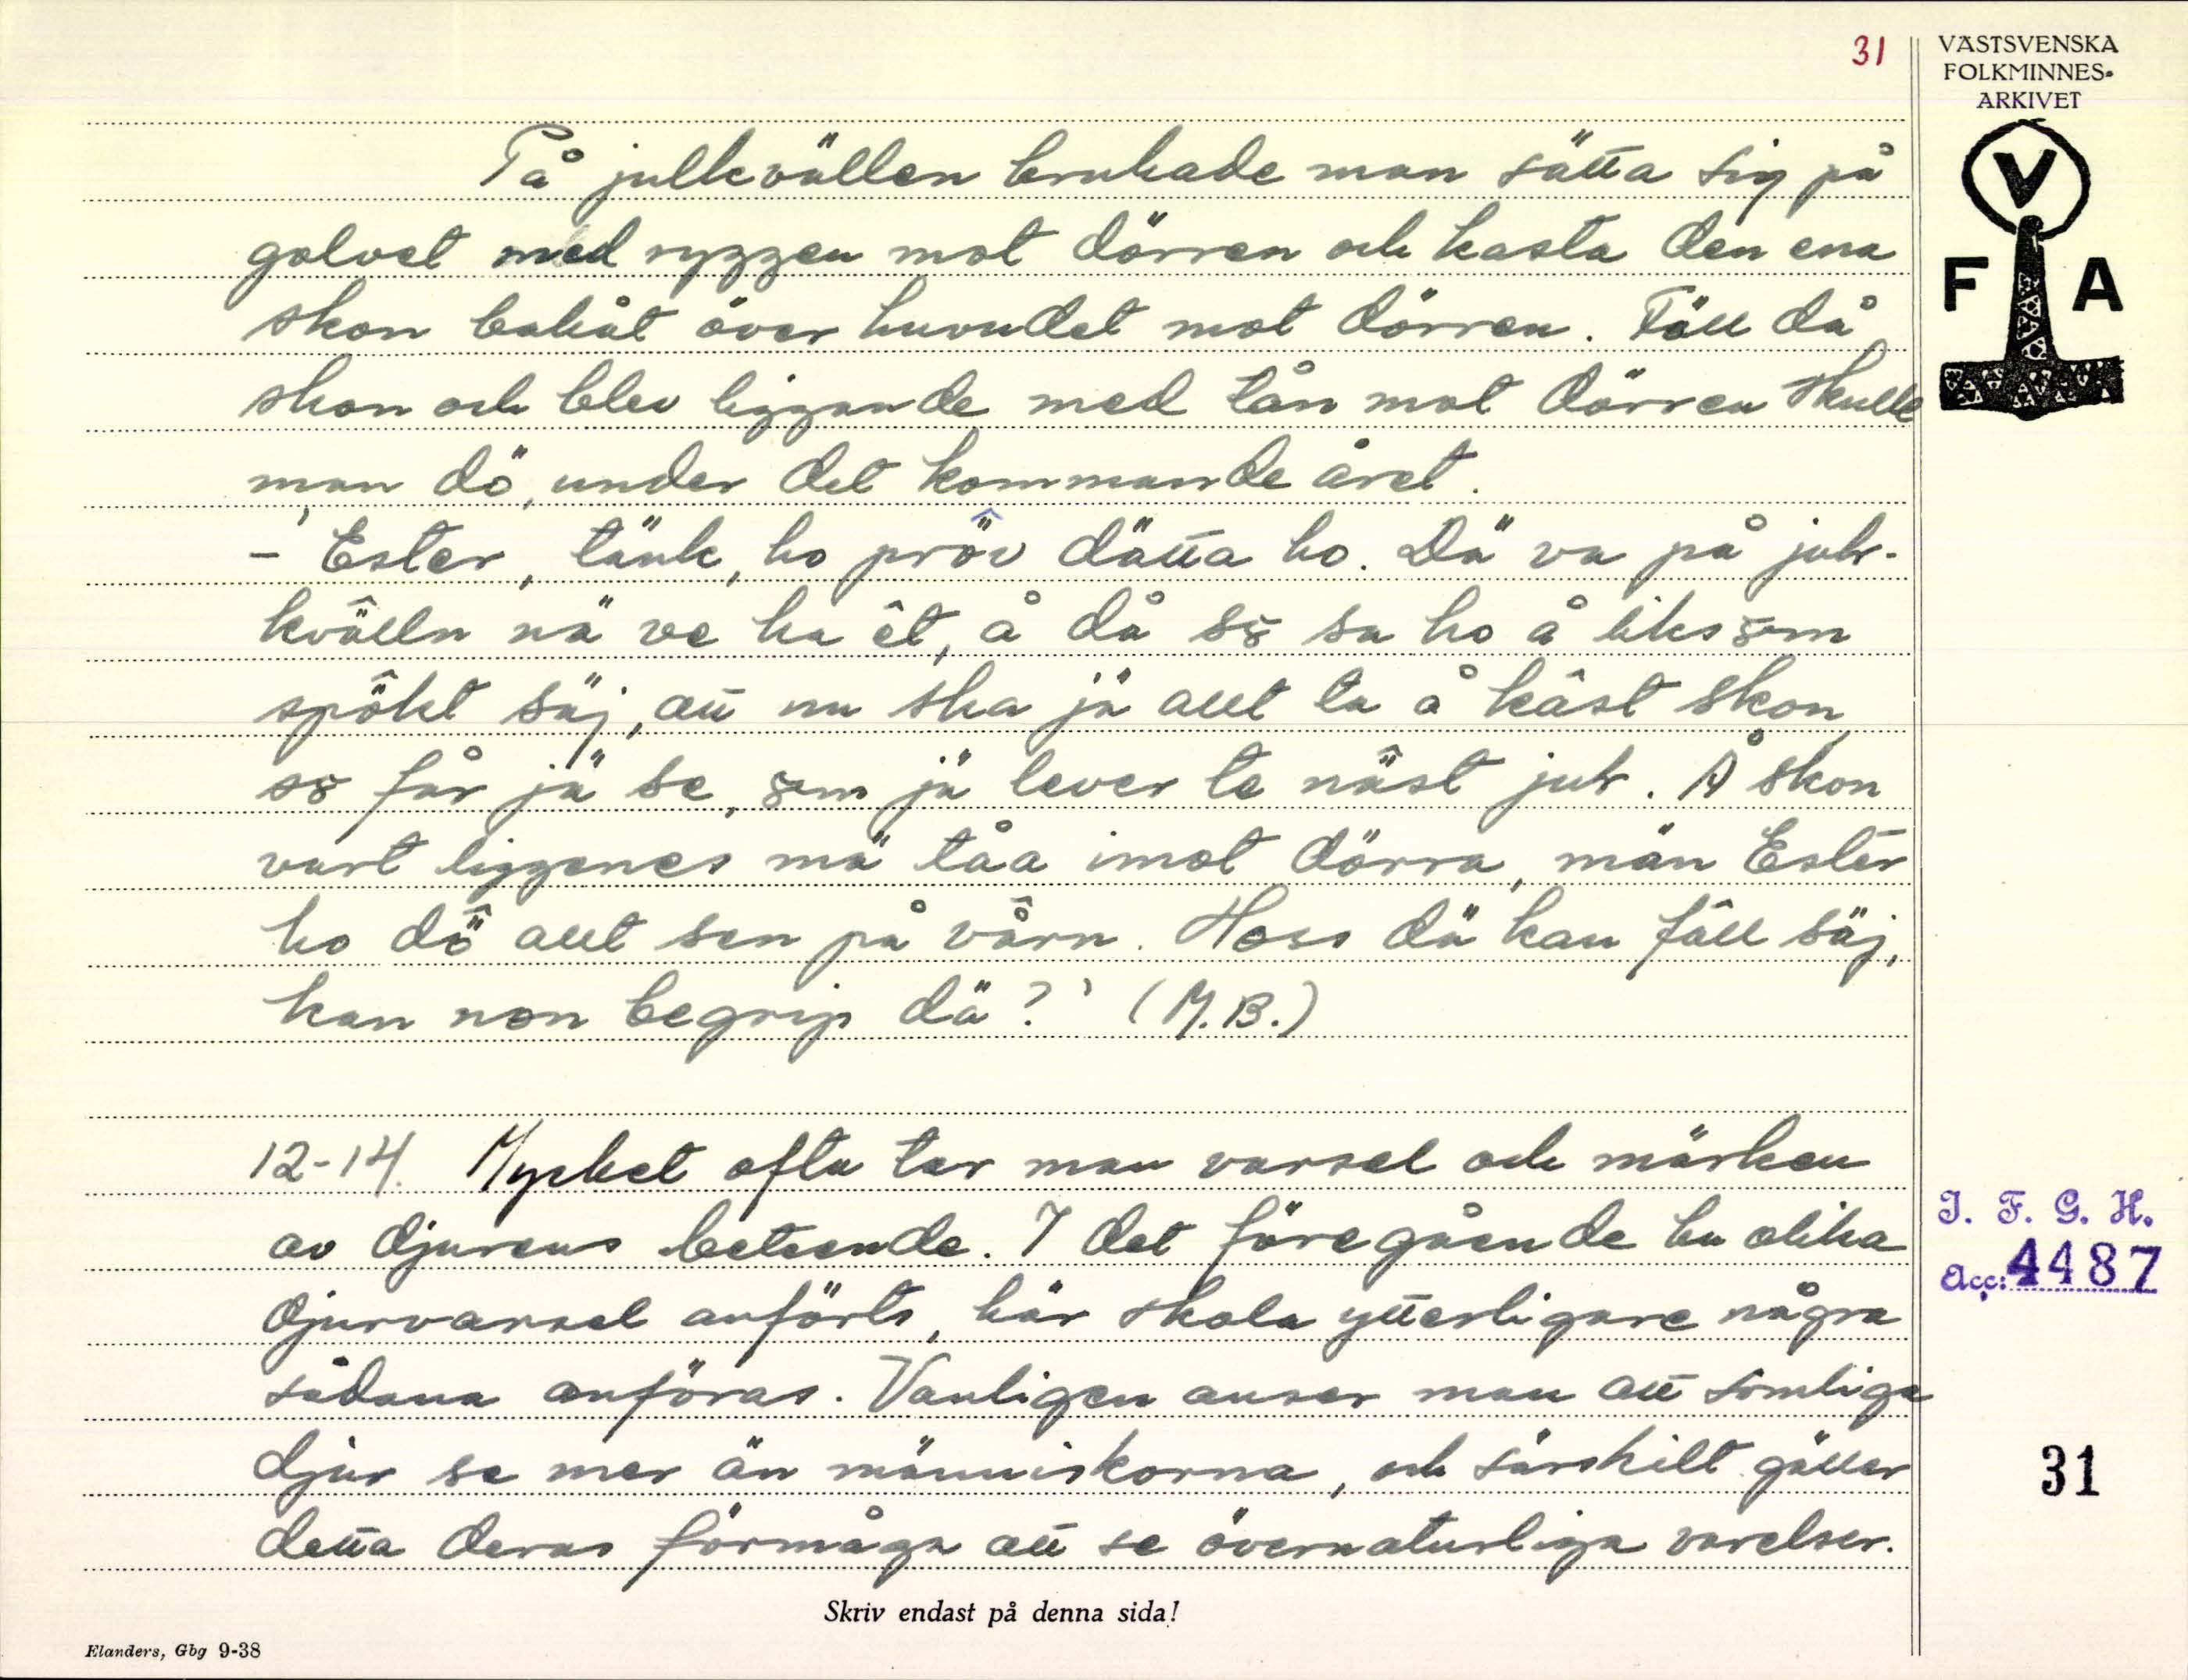 31
VÄSTSVENSKA
FOLKMINNES-
ARKIVET
V
F A
På julkvällen brukade man sätta sig på
golvet med ryggen mot dörren och kasta den ena
skon bakåt över huvudet mot dörren. Föll då
skon och blev liggande med tån mot dörren skulle
man dö, under det kommande året.
- 'Ester, tänk, ho pröv dätta ho. Dä va på jul-
kvälln nä ve ha êt, å då så sa ho å liksom
spôkt säj, att nu ska jä allt ta å kâst skon,
så får jä se, om jä lever te näst jul. Å skon
vart liggenes mä tåa imot dörra, män Ester
ho dö allt sen på vårn. Hoss dä kan fâll säj,
kan non begrip dä?' (M.B.)
12-14. Mycket ofta tar man varsel och märken
av djurens beteende. I det föregående ha olika
djurvarsel anförts, här skola ytterligare några
sådana anföras. Vanligen anser man att somliga
djur se mer än människorna, och särskilt gäller
detta deras förmåga att se övernaturliga varelser.
I. F. G. H.
Acc: 4487
31
Skriv endast på denna sida!
Elanders, Gbg 9-38